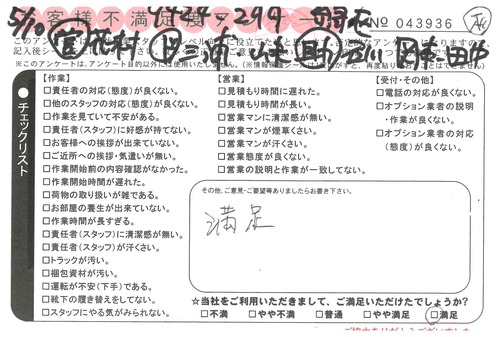 5/10 4424-299 婦衣
お客様不満足度 No 043936
営 岡村 三浦
【作業】
□責任者の対応(態度)が良くない。
□他のスタッフの対応(態度)が良くない。
□作業を見ていて不安がある。
□責任者(スタッフ)に好感が持てない。
□お客様への挨拶が出来ていない。
□ご近所への挨拶・気遣いが無い。
□作業開始前の内容確認がなかった。
□作業開始時間が遅れた。
□荷物の取り扱いが雑である。
□お部屋の養生が出来ていない。
□作業時間が長すぎる。
□責任者(スタッフ)に清潔感が無い。
□責任者(スタッフ)が汗くさい。
□トラックが汚い。
□梱包資材が汚い。
□運転が不安(下手)である。
□靴下の履き替えをしてない。
□スタッフにやる気がみられない。
【営業】
□見積もり時間に遅れた。
□見積もり時間が長い。
□営業マンに清潔感が無い。
□営業マンが煙草くさい。
□営業マンが汗くさい。
□営業態度が良くない。
□営業の説明と作業が一致してない。
【受付・その他】
□電話の対応が良くない。
□オプション業者の説明
・作業が良くない。
□オプション業者の対応
(態度)が良くない。
チェックリスト
その他、ご意見・ご要望等ありましたらお書き下さい。
満足
☆当社をご利用いただきまして、ご満足いただけたでしょうか?
□不満 □やや不満 □普通 □やや満足 □満足